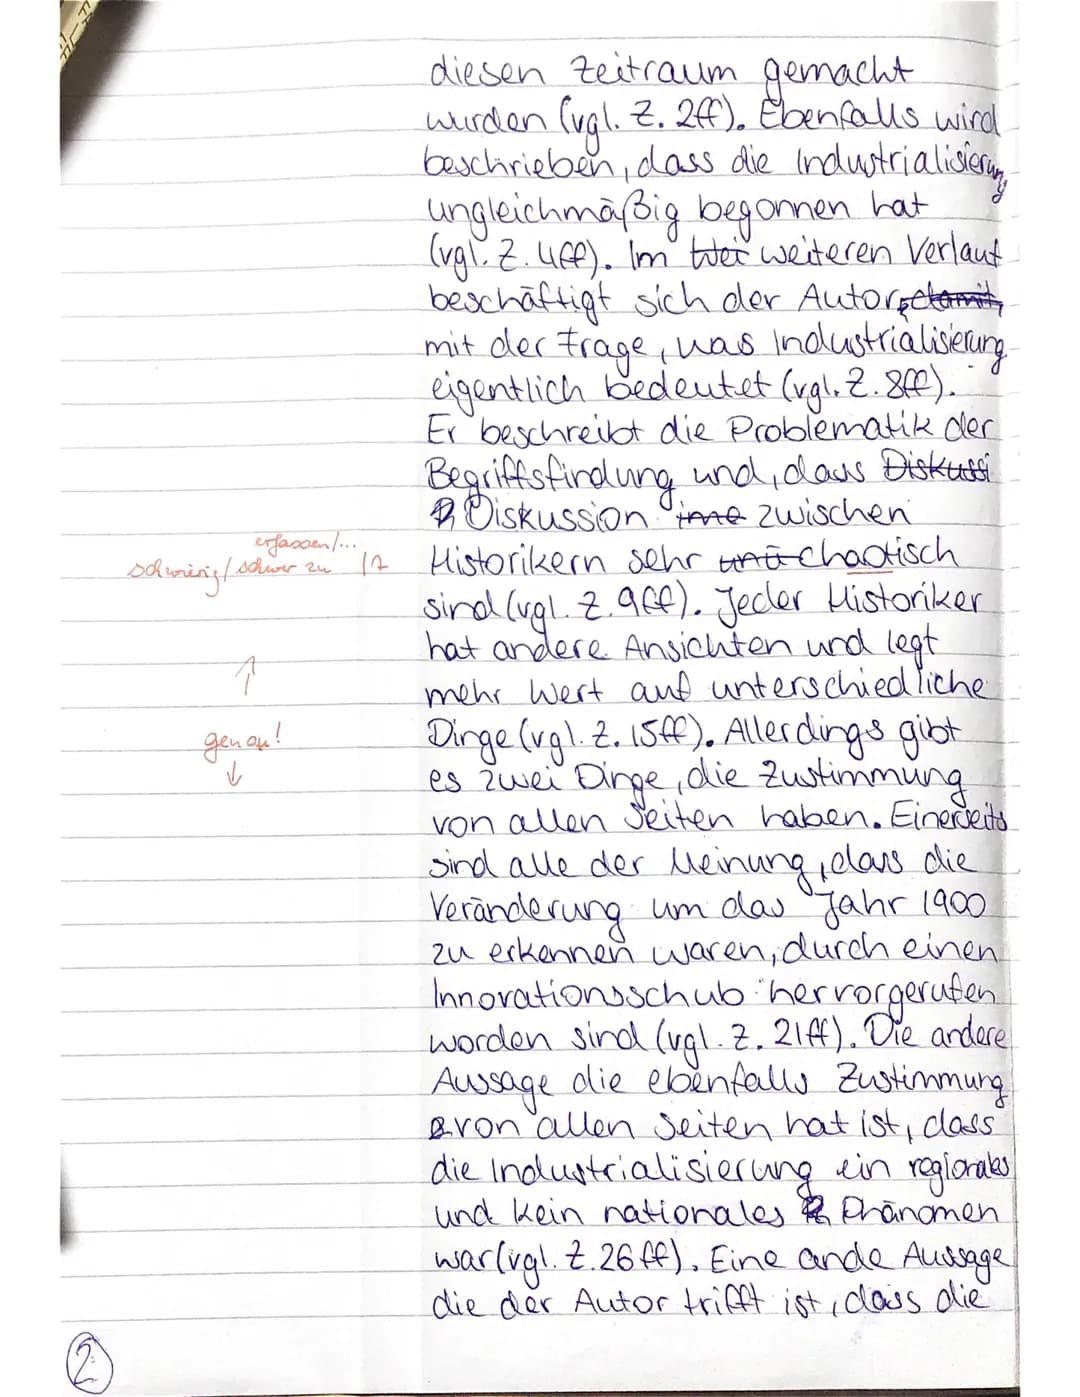 diesen Zeitraum gemacht
wurden (vgl. Z. 2ff). Ebenfalls wird
beschrieben, dass die Industrialisierung
ungleichmäßig begonnen hat
(vgl. Z. 4ff). Im weiteren Verlauf
beschäftigt sich der Autor damit,
mit der Frage, was Industrialisierung
eigentlich bedeutet (vgl. Z. 8ff).
Er beschreibt die Problematik der
Begriffsfindung und, dass Diskussi
Diskussion zwischen
erfassen/...
schwierig/schwer zu
Historikern sehr chaotisch
sind (vgl. Z. 9ff). Jeder Historiker
hat andere Ansichten und legt
mehr Wert auf unterschiedliche
genau!
Dinge (vgl. Z. 15ff). Allerdings gibt
es zwei Dinge, die Zustimmung
von allen Seiten haben. Einerseits
sind alle der Meinung, dass die
Veränderung um das Jahr 1900
zu erkennen waren, durch einen
Innovationsschub hervorgerufen
worden sind (vgl. Z. 21ff). Die andere
Aussage die ebenfalls Zustimmung
von allen Seiten hat ist, dass
die Industrialisierung ein regionales
und kein nationales Phänomen
war (vgl. Z. 26ff). Eine ande Aussage
die der Autor trifft ist, dass die
2